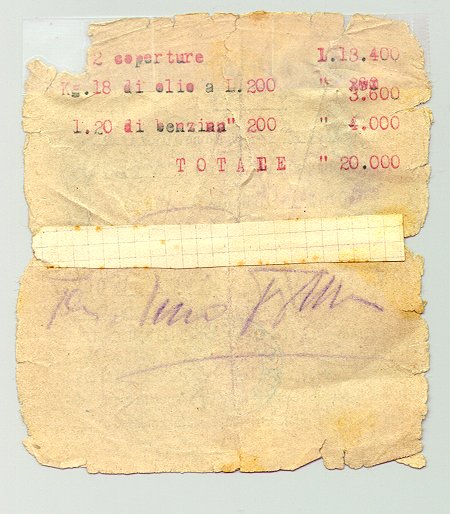 2 coperture L.13.400
Kg.18 di olio a L.200 " 3.600
l.20 di benzina" 200 " 4.000
T O T A L E " 20.000